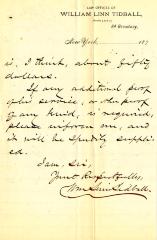 LAW OFFICES OF
WILLIAM LINN TIDBALL,
Broadway,
New York 187
is, I think, about fifty
dollars.
If any additional proof
of his service, or other proof
of any kind, is required,
please inform me, and
it will be speedily suppli-
ed.
I am, Sir,
Yours Respectfully
Wm Linn Tidball.